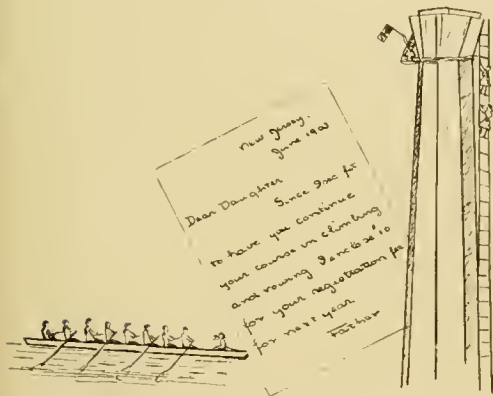 New Jersey.
June 1900
Dear Daughter
Since I see fit
to have you continue
your course in climbing
and rowing I enclose $10
for your registration fee
for next year
Father